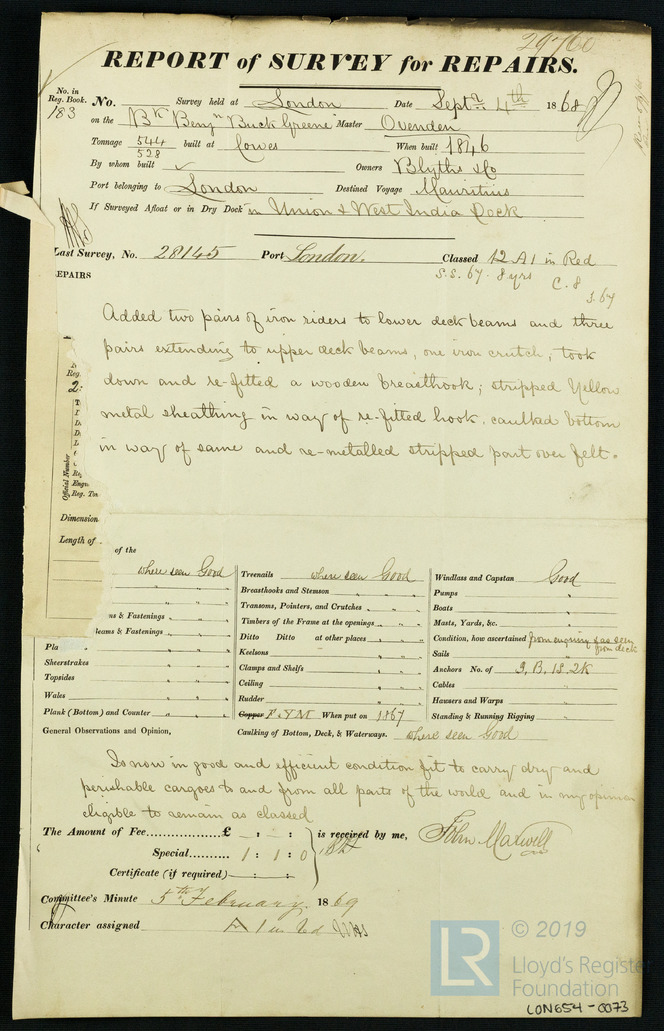 29760
REPORT of SURVEY for REPAIRS.
No. in Reg. Book. 183
No. Survey held at London Date Sept. 4th 1868
on the Bk Benjn Buck Greene Master Ovenden
Tonnage 544 built at Cowes When built 1846
528
By whom built Owners Blyths & Co
Port belonging to London Destined Voyage Mauritius
If Surveyed Afloat or in Dry Dock in Union & West India Dock
Last Survey, No. 28145 Port London. Classed 12 A1 in Red
S.S. 67. 8 yrs C. 8
S. 67
EPAIRS
Added two pairs of iron riders to lower deck beams and three
pairs extending to upper deck beams, one iron crutch, took
down and re-fitted a wooden breasthook; stripped Yellow
metal sheathing in way of re-fitted hook, caulked bottom
in way of same and re-metalled stripped part over felt.
Reg.
2
Official Number
Reg. Ton
Dimension
Length of
of the
where seen Good Treenails where seen Good Windlass and Capstan Good
" " " Breasthooks and Stemson " " " Pumps "
" " " Transoms, Pointers, and Crutches " " " Boats "
ns & Fastenings " " " Timbers of the Frame at the openings " " " Masts, Yards, &c. "
eams & Fastenings " " " Ditto Ditto at other places " " " Condition, how ascertained from enquiry & as seen from deck
Pla " " " Keelsons " " " Sails "
Sheerstrakes " " " Clamps and Shelfs " " " Anchors No. of 3. B. 1S. 2K
Topsides " " " Ceiling " " " Cables "
Wales " " " Rudder " " " Hawsers and Warps "
Plank (Bottom) and Counter " " " Copper F & YM When put on 1867 Standing & Running Rigging "
General Observations and Opinion, Caulking of Bottom, Deck, & Waterways. where seen Good
Is now in good and efficient condition fit to carry dry and
perishable cargoes to and from all parts of the world and in my opinion
eligible to remain as classed
The Amount of Fee £ - : - : is received by me, John Maxwell
Special 1 : 1 : 0
Certificate (if required) : :
Committee's Minute 5th February 1869
Character assigned A 1 in red
LR © 2019
Lloyd's Register
Foundation
LON654-0073